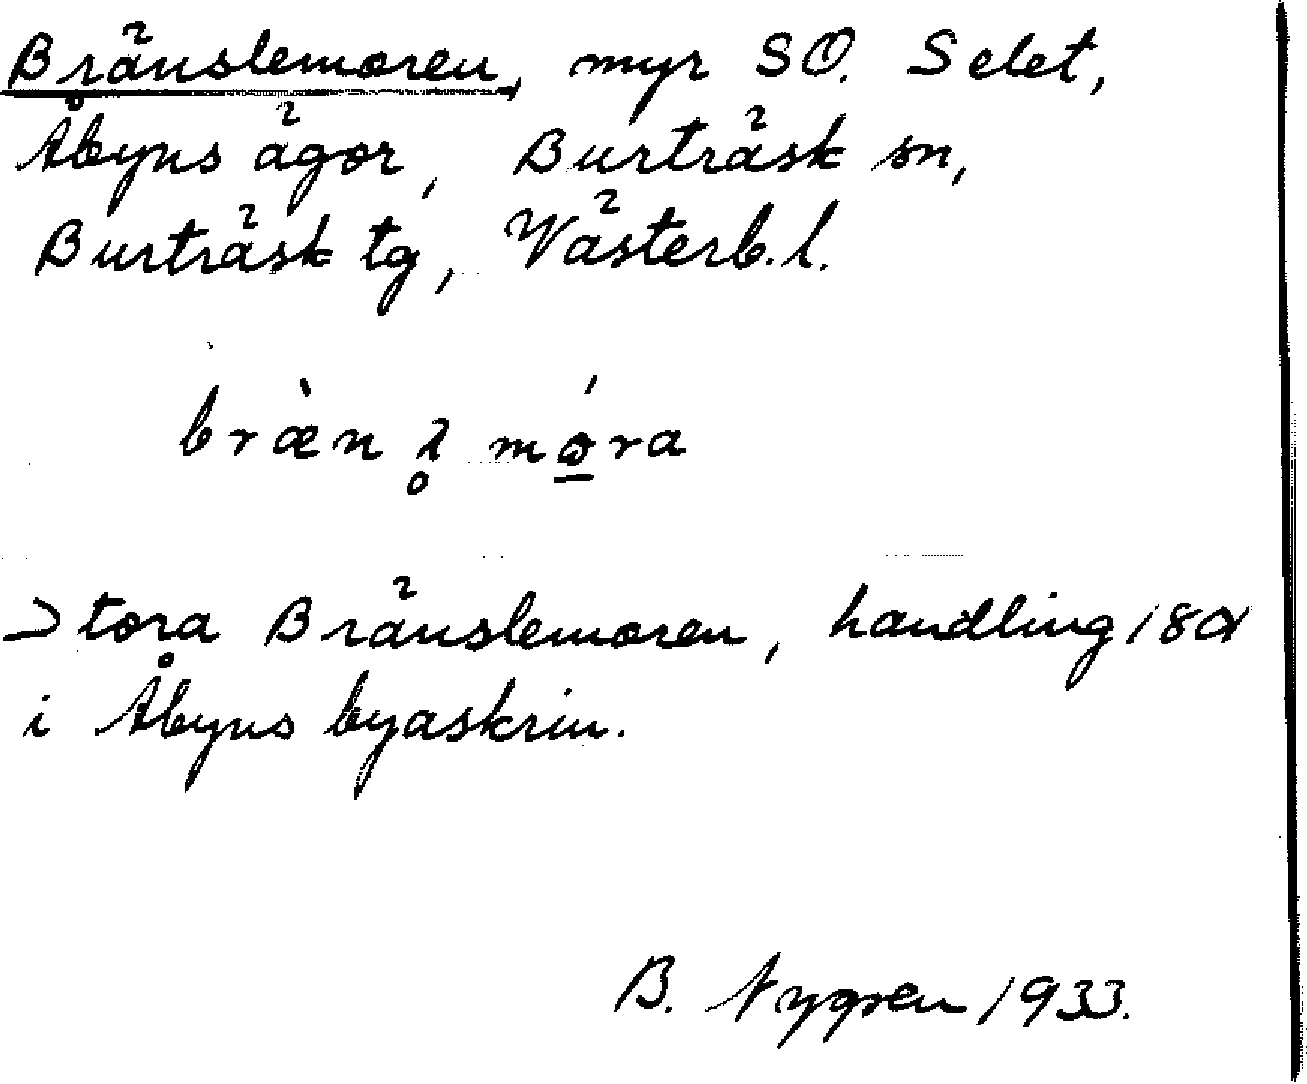 Bränslemoren, myr SO. Selet,
Åbyns ägor, Burträsk sn,
Burträsk tg, Västerb. l.
bræ̀n λ̥ mó̱ra
Stora Bränslemoren, handling
i Åbyns byaskrin.
B. Nygren 1933.